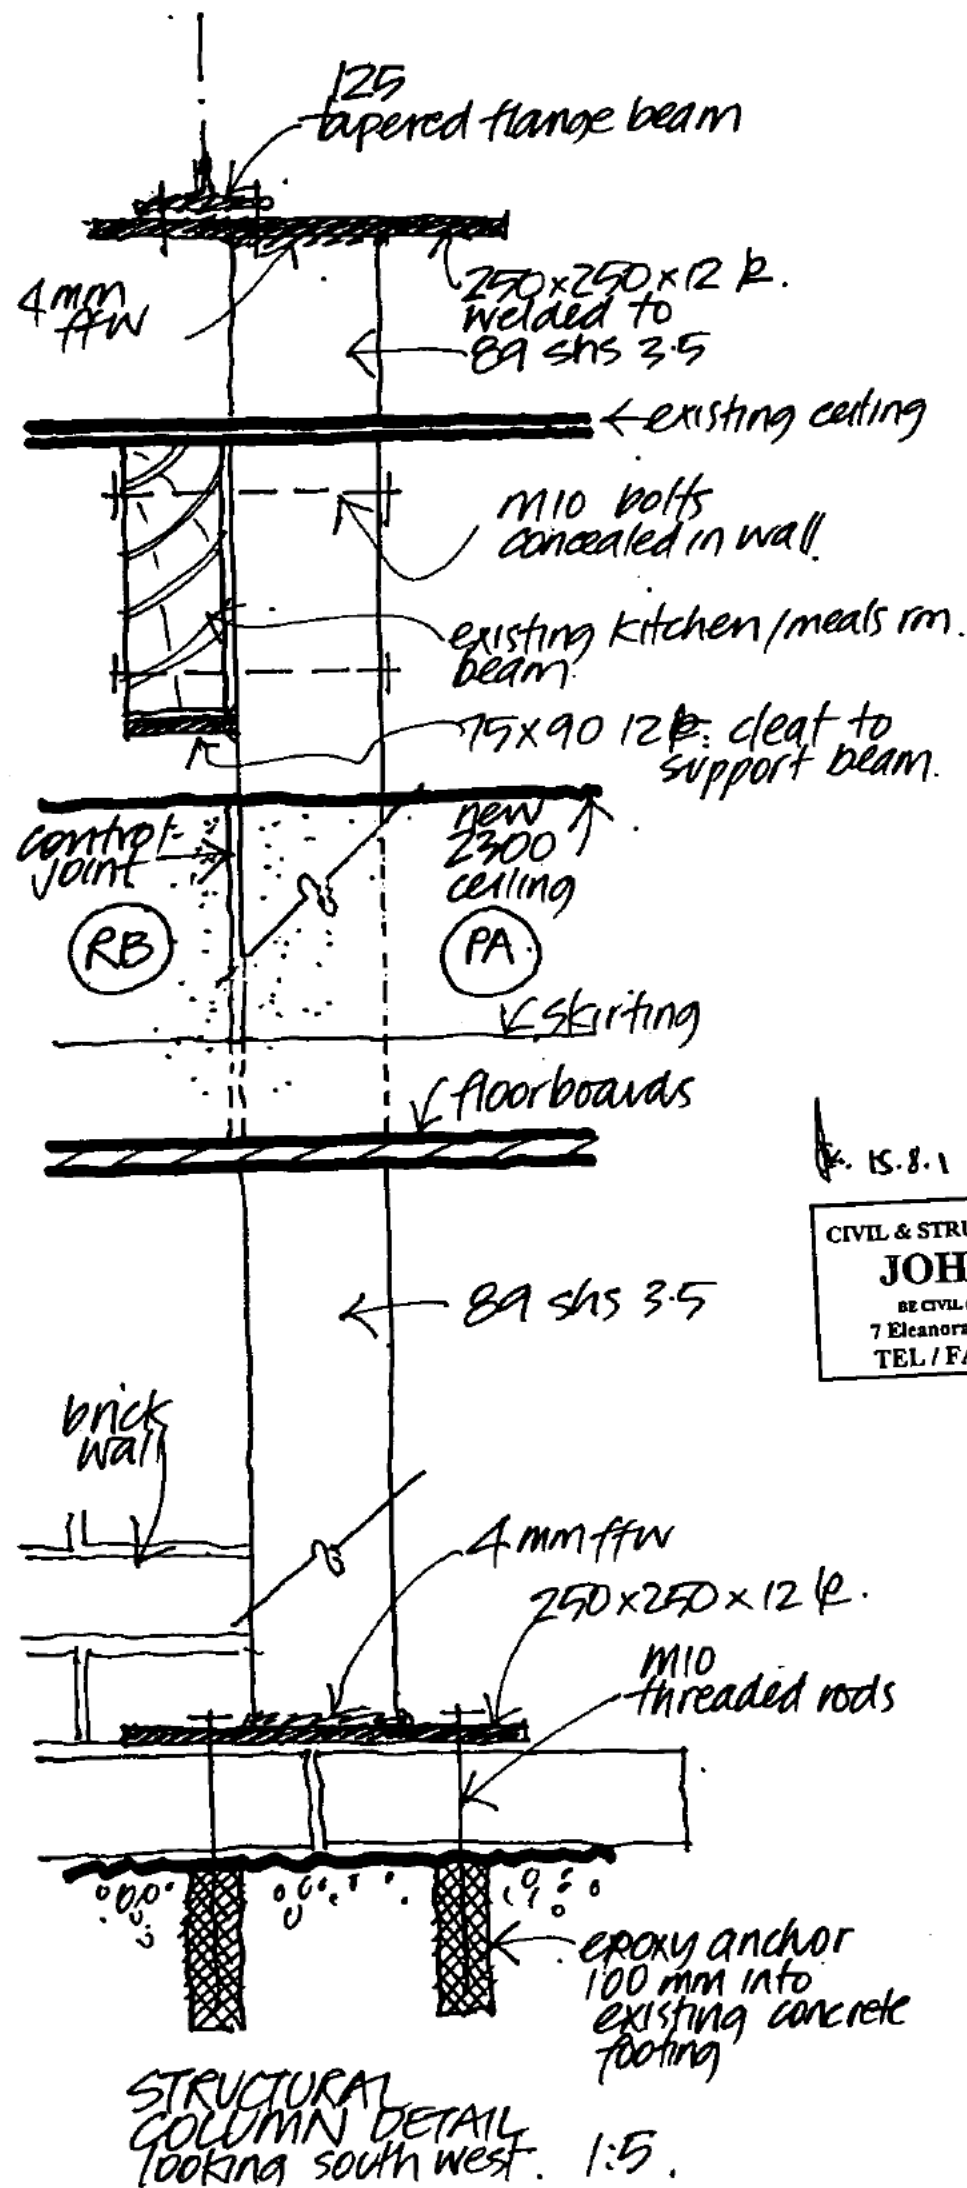 125
tapered flange beam
4mm
ffw
250x250x12 PL.
welded to
89 shs 3.5
existing ceiling
M10 bolts
concealed in wall.
existing kitchen/meals rm.
beam.
75x90 12 PL. cleat to
support beam.
control
joint
new
2300
ceiling
RB
PA
skirting
floorboards
15.8.1
CIVIL & STRU
JOH
BE CIVIL
7 Eleanora
TEL / FA
89 shs 3.5
brick
wall
4mm ffw
250x250x12 PL.
M10
threaded rods
epoxy anchor
100 mm into
existing concrete
footing
STRUCTURAL
COLUMN DETAIL
looking south west. 1:5.